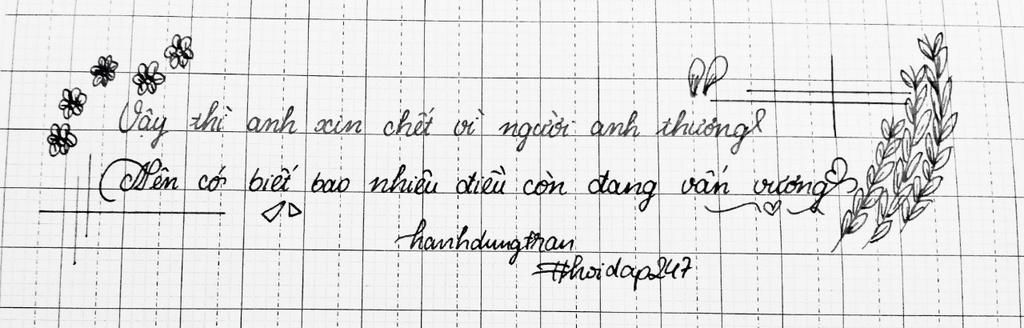 Vậy thì anh xin chết vì người anh thương
Nên có biết bao nhiêu điều còn đang vấn vương
hanhdungtran
#hoidap247